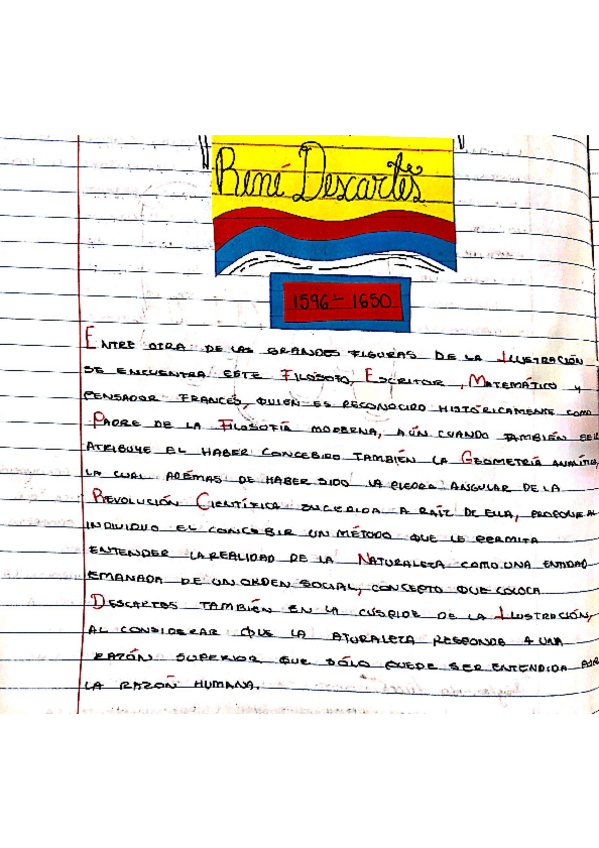 René Descartes
1596 - 1650
ENTRE OTRA DE LAS GRANDES FIGURAS DE LA ILUSTRACIÓN
SE ENCUENTRA ESTE FILOSOFO, ESCRITOR, MATEMÁTICO Y
PENSADOR FRANCÉS, QUIEN ES RECONOCIDO HISTÓRICAMENTE COMO
PADRE DE LA FILOSOFÍA MODERNA, AÚN CUANDO TAMBIÉN SE LE
ATRIBUYE EL HABER CONCEBIDO TAMBIÉN LA GEOMETRÍA ANALÍTICA,
LA CUAL ADEMÁS DE HABER SIDO LA PIEDRA ANGULAR DE LA
REVOLUCIÓN CIENTÍFICA SUCERIDA A RAÍZ DE ELLA, PROPONE AL
INDIVIDUO EL CONCEBIR UN MÉTODO QUE LE PERMITA
ENTENDER LA REALIDAD DE LA NATURALEZA COMO UNA ENTIDAD
EMANADA DE UN ORDEN SOCIAL, CONCEPTO QUE COLOCA
DESCARTES TAMBIÉN EN LA CÚSPIDE DE LA ILUSTRACIÓN,
AL CONSIDERAR QUE LA ATURALEZA RESPONDE A UNA
RAZÓN SUPERIOR QUE SÓLO PUEDE SER ENTENDIDA POR
LA RAZÓN HUMANA.